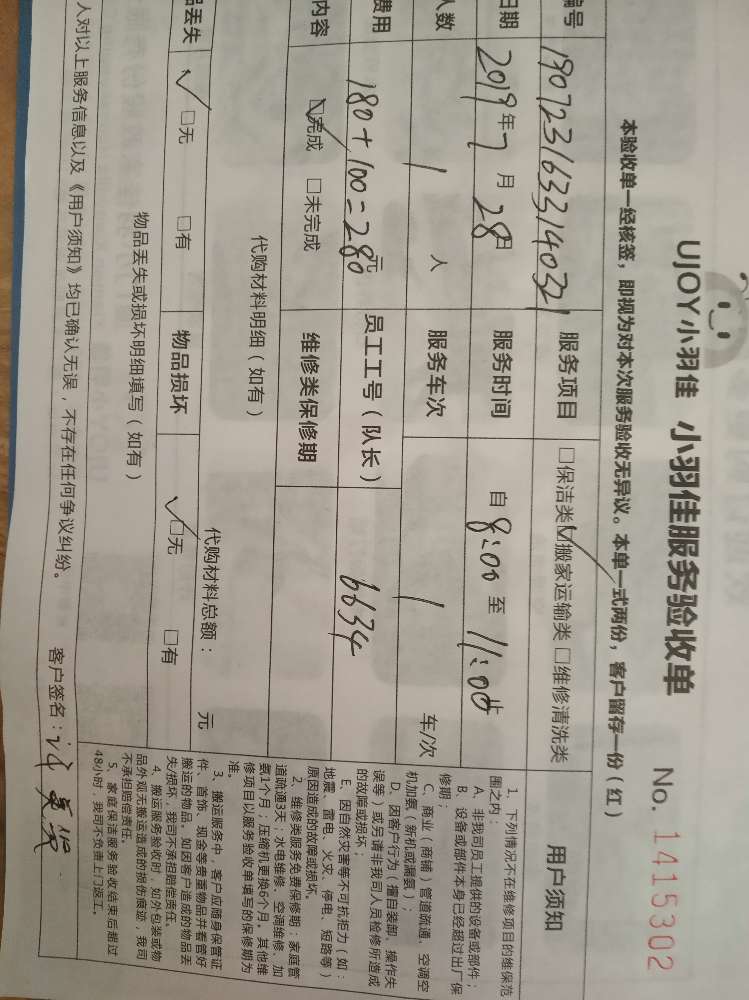 UJOY小羽佳 小羽佳服务验收单
No. 1415302
本验收单一经核签，即视为对本次服务验收无异议。本单一式两份，客户留存一份（红）
编号 190723163314032 服务项目 □保洁类 ☑搬家运输类 □维修清洗类
日期 2019年7月28日 服务时间 自8:00至11:00
人数 1 人 服务车次 1 车/次
费用 180+100=280元 员工工号（队长） 6634
内容 ☑完成 □未完成 维修类保修期
代购材料明细（如有）
代购材料总额： 元
品丢失 ☑无 □有 物品损坏 ☑无 □有
物品丢失或损坏明细填写（如有）
人对以上服务信息以及《用户须知》均已确认无误，不存在任何争议纠纷。
客户签名：
用户须知
1、下列情况不在维修项目的维保范
围之内：
A、非我司员工提供的设备或部件；
B、设备或部件本身已经超过出厂保
修期；
C、商业（商铺）管道疏通、空调空
机加氨（新机或漏氨）；
D、因客户行为（擅自装卸、操作失
误等）或另请非我司人员检修所造成
的故障或损坏；
E、因自然灾害等不可抗拒力（如：
地震、雷电、火灾、停电、短路等）
原因造成的故障或损坏。
2、维修类服务免费保修期：家庭管
道疏通3天；水电维修、空调维修、加
氨1个月；压缩机更换6个月。其他维
修项目以服务验收单填写的保修期为
准。
3、搬运服务中，客户应随身保管证
件、首饰、现金等贵重物品并看管好
搬运的物品。如因客户造成的物品丢
失/损坏，我司不承担赔偿责任。
4、搬运服务验收时，如外包装或物
品外观无搬运造成的损伤痕迹，我司
不承担赔偿责任。
5、家庭保洁服务验收结束后超过
48小时，我司不负责上门返工。